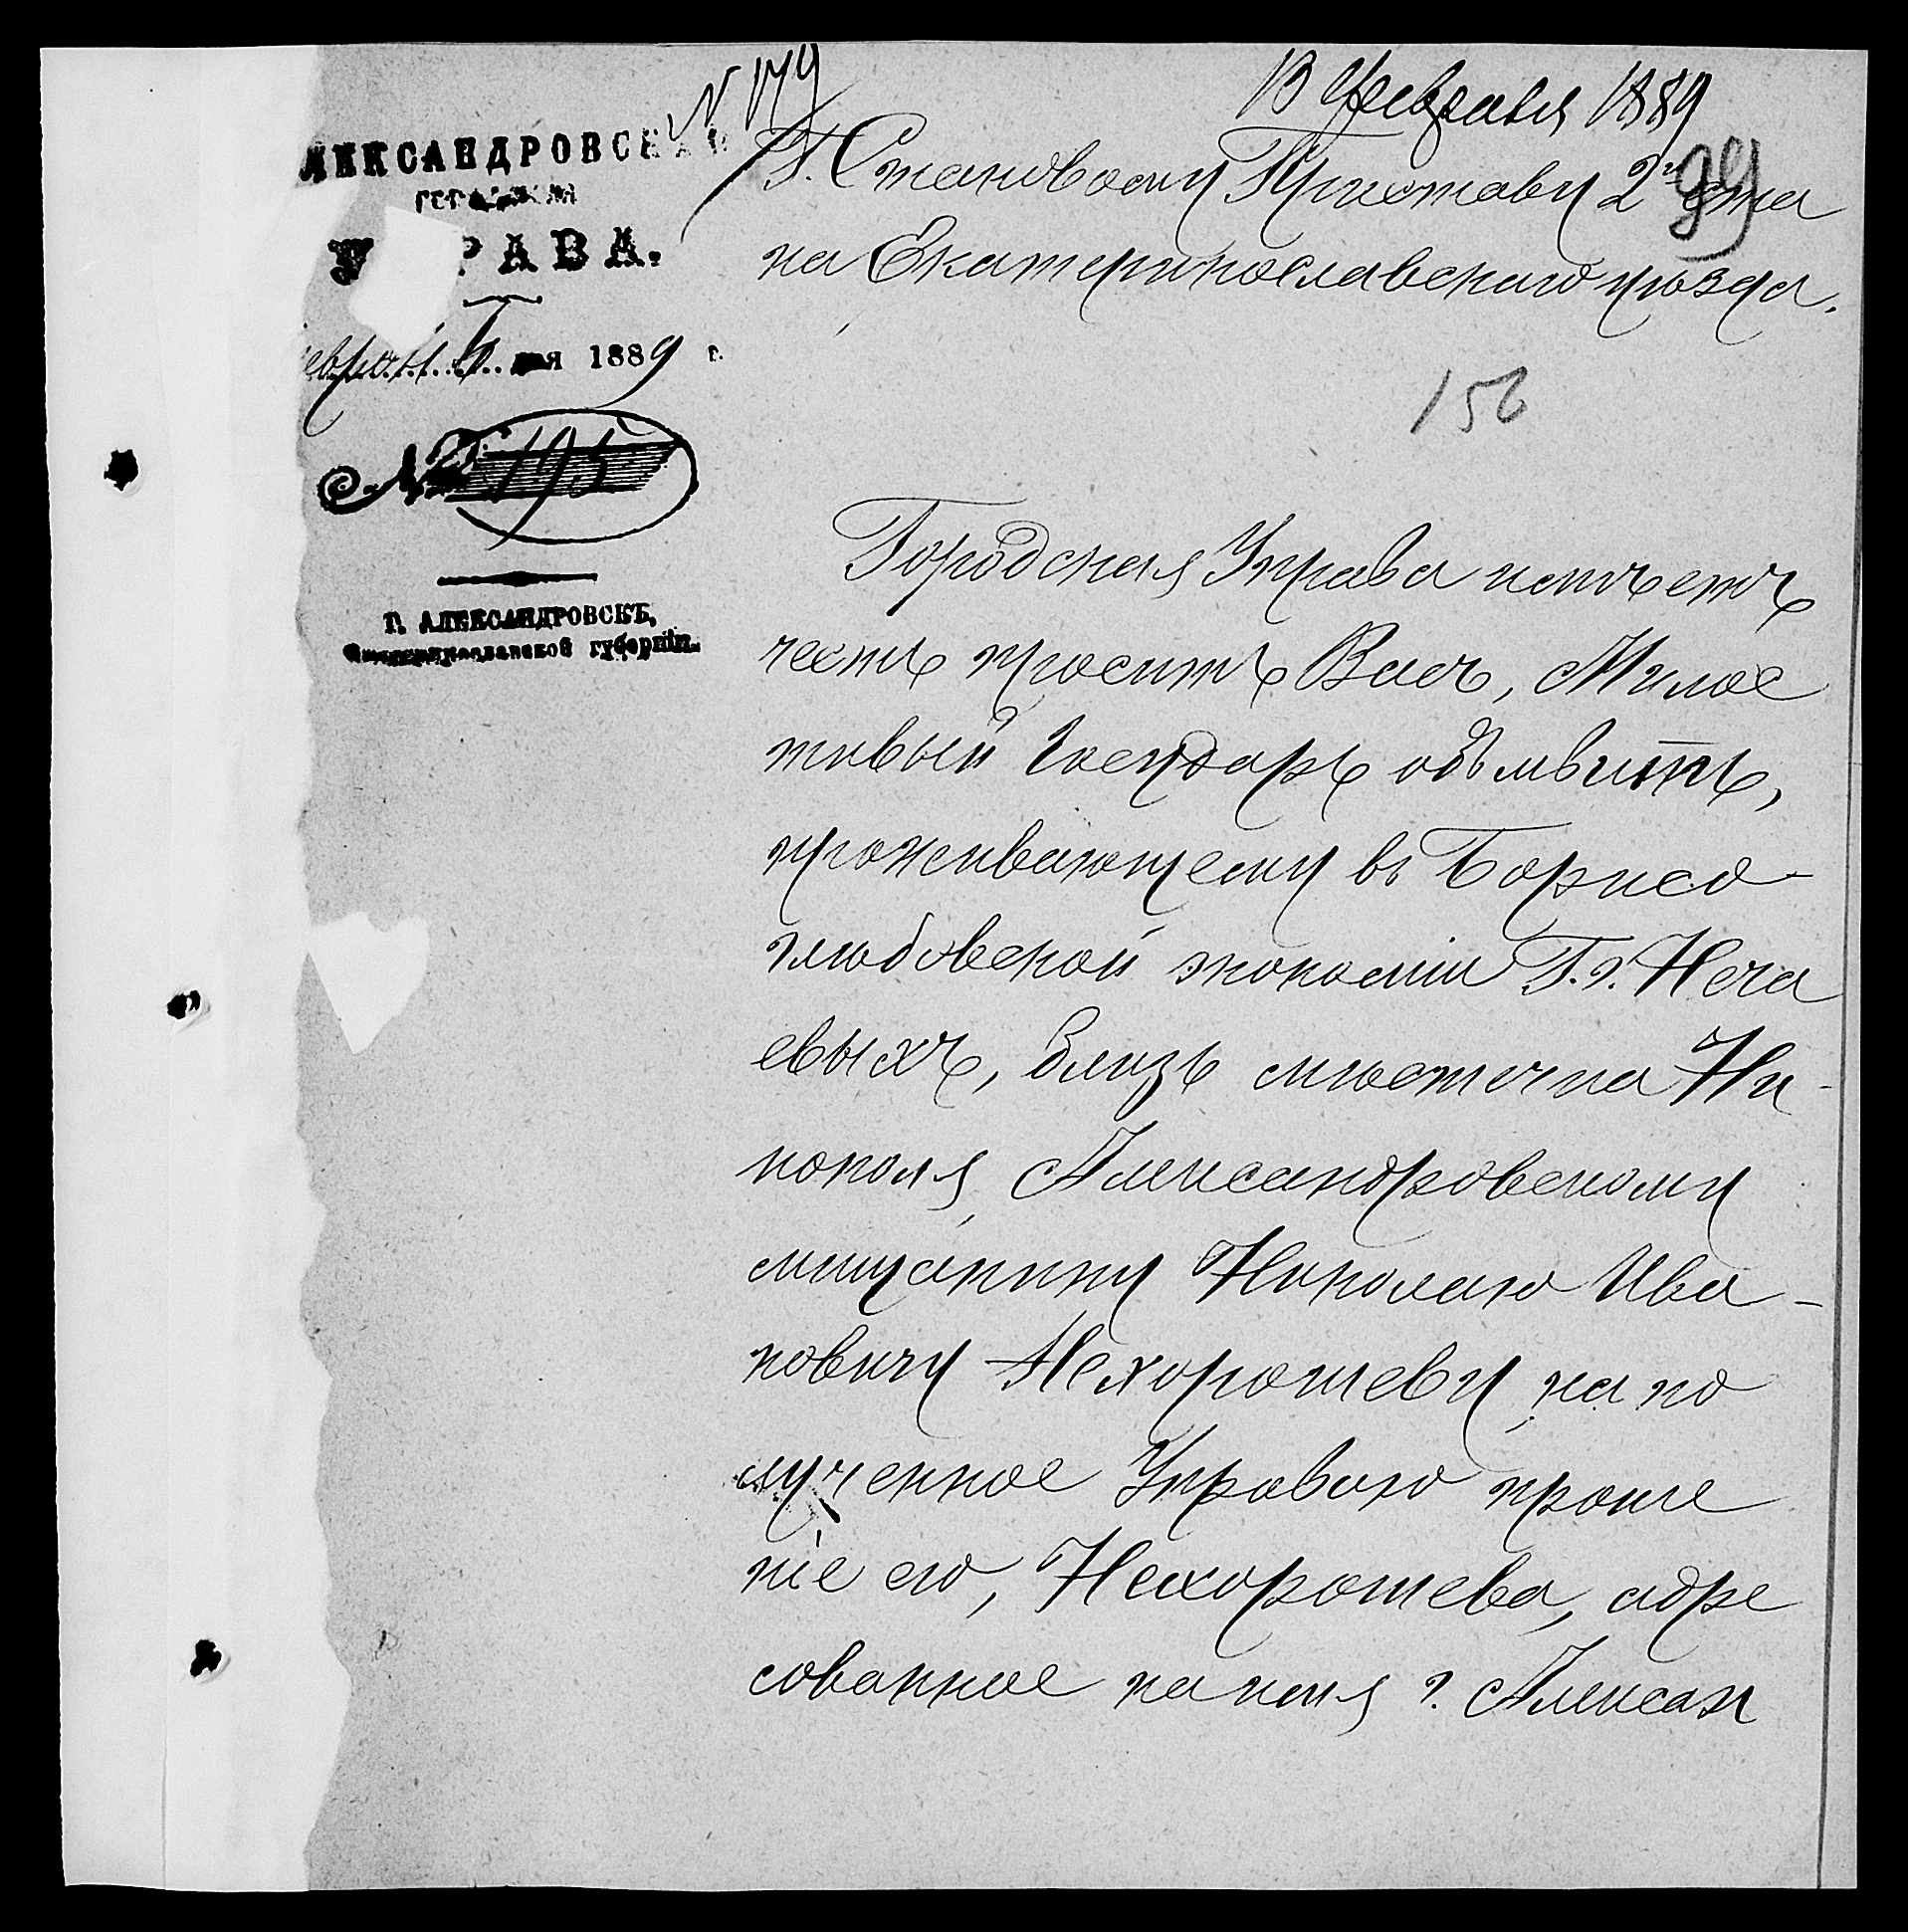 N 179
13 Февраля 1889
99
АЛЕКСАНДРОВСКАЯ
ГОРОДСКАЯ
УПРАВА.
Февраля 7 дня 1889 г.
№ 195
Г. АЛЕКСАНДРОВСКЪ,
Екатеринославской губерніи.
Г. Становому Приставу 2го ста
на Екатеринославскаго уѣзда.
156
Городская Управа имѣетъ
честь просить Васъ, Милос
тивый Государь объявить,
проживающему въ Борисо-
глѣбовской экономіи Г.г. Неча
евыхъ, близь мѣстечка Ни-
кополя, Александровскому
мищанину Николаю Ива-
новичу Нехорошеву, на по
лученное Управою проше
ніе его, Нехорошева, адре
сованное на имя г. Алексан